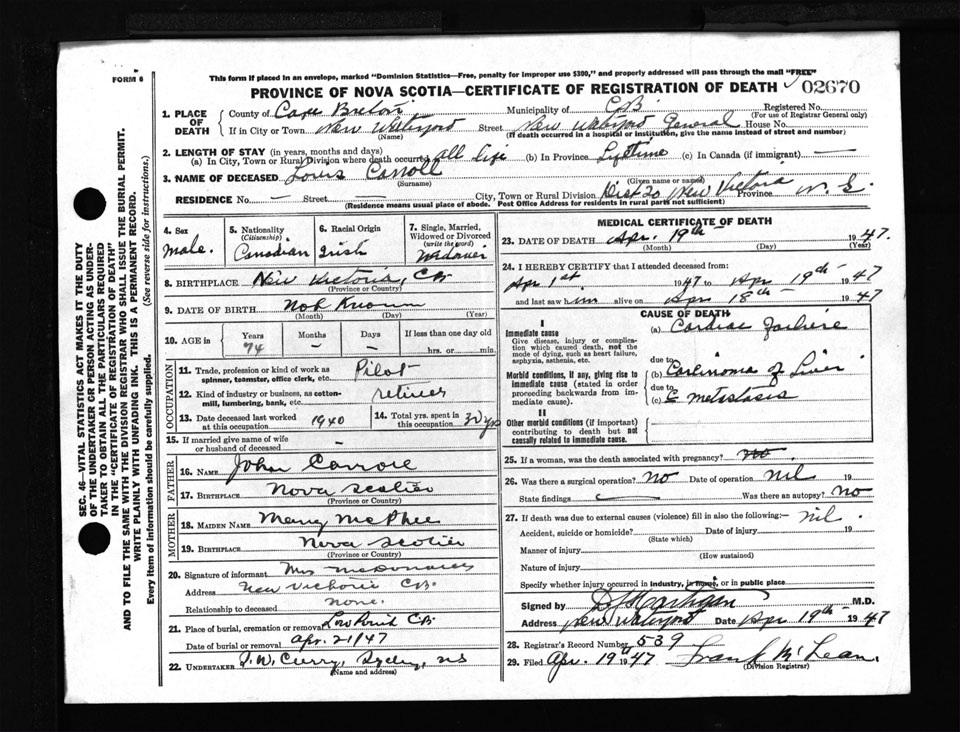 FORM 6
This form if placed in an envelope, marked "Dominion Statistics—Free, penalty for improper use $300," and properly addressed will pass through the mail "FREE"
PROVINCE OF NOVA SCOTIA—CERTIFICATE OF REGISTRATION OF DEATH
02670
1. PLACE OF DEATH
County of Cape Breton Municipality of CB Registered No.
(For use of Registrar General only)
If in City or Town New Waterford Street New Waterford General House No.
(Name) (If death occurred in a hospital or institution, give the name instead of street and number)
2. LENGTH OF STAY (in years, months and days)
(a) In City, Town or Rural Division where death occurred all life (b) In Province Lifetime (c) In Canada (if immigrant) —
3. NAME OF DECEASED Louis Carroll
(Surname) (Given name or names)
RESIDENCE No. — Street City, Town or Rural Division Dist 20 New Victoria Province N.S.
(Residence means usual place of abode. Post Office Address for residents in rural parts not sufficient)
4. Sex
Male.
5. Nationality
(Citizenship)
Canadian
6. Racial Origin
Irish
7. Single, Married, Widowed or Divorced
(write the word)
Widower
8. BIRTHPLACE New Victoria, CB
(Province or Country)
9. DATE OF BIRTH Not Known
(Month) (Day) (Year)
10. AGE in
Years
74
Months
—
Days
—
If less than one day old
hrs. or min.
OCCUPATION
11. Trade, profession or kind of work as spinner, teamster, office clerk, etc. Pilot
12. Kind of industry or business, as cotton-mill, lumbering, bank, etc. retired
13. Date deceased last worked at this occupation 1940
14. Total yrs. spent in this occupation 30 yrs
15. If married give name of wife or husband of deceased —
FATHER
16. NAME John Carroll
17. BIRTHPLACE Nova Scotia
(Province or Country)
MOTHER
18. MAIDEN NAME Mary McPhee
19. BIRTHPLACE Nova Scotia
(Province or Country)
20. Signature of informant Mrs McDonald
Address New Victoria CB.
Relationship to deceased none.
21. Place of burial, cremation or removal Low Point CB
Date of burial or removal Apr. 21/47
22. UNDERTAKER J. W. Curry, Sydney, NS
(Name and address)
MEDICAL CERTIFICATE OF DEATH
23. DATE OF DEATH Apr. 19th 1947.
(Month) (Day) (Year)
24. I HEREBY CERTIFY that I attended deceased from:
Apr 1st 1947 to Apr 19th 1947
and last saw him alive on Apr 18th 1947
CAUSE OF DEATH
I
Immediate cause
Give disease, injury or complication which caused death, not the mode of dying, such as heart failure, asphyxia, asthenia, etc.
(a) Cardiac Failure
due to
Morbid conditions, if any, giving rise to immediate cause (stated in order proceeding backwards from immediate cause).
(b) Carcinoma of Liver
due to
(c) c̄ metastasis
II
Other morbid conditions (if important) contributing to death but not causally related to immediate cause.
25. If a woman, was the death associated with pregnancy? no
26. Was there a surgical operation? no Date of operation nil 19
State findings — Was there an autopsy? no
27. If death was due to external causes (violence) fill in also the following:— nil.
Accident, suicide or homicide? Date of injury 19
(State which)
Manner of injury
(How sustained)
Nature of injury
Specify whether injury occurred in industry, in home, or in public place
Signed by M.D.
Address New Waterford Date Apr 19th 1947
28. Registrar's Record Number 539
29. Filed Apr. 19th 1947 Frank McLean.
(Division Registrar)
SEC. 46—VITAL STATISTICS ACT MAKES IT THE DUTY
OF THE UNDERTAKER OR PERSON ACTING AS UNDER-
TAKER TO OBTAIN ALL THE PARTICULARS REQUIRED
IN THE "CERTIFICATE OF REGISTRATION OF DEATH"
AND TO FILE THE SAME WITH THE DIVISION REGISTRAR WHO SHALL ISSUE THE BURIAL PERMIT.
WRITE PLAINLY WITH UNFADING INK. THIS IS A PERMANENT RECORD.
Every item of information should be carefully supplied. (See reverse side for instructions.)